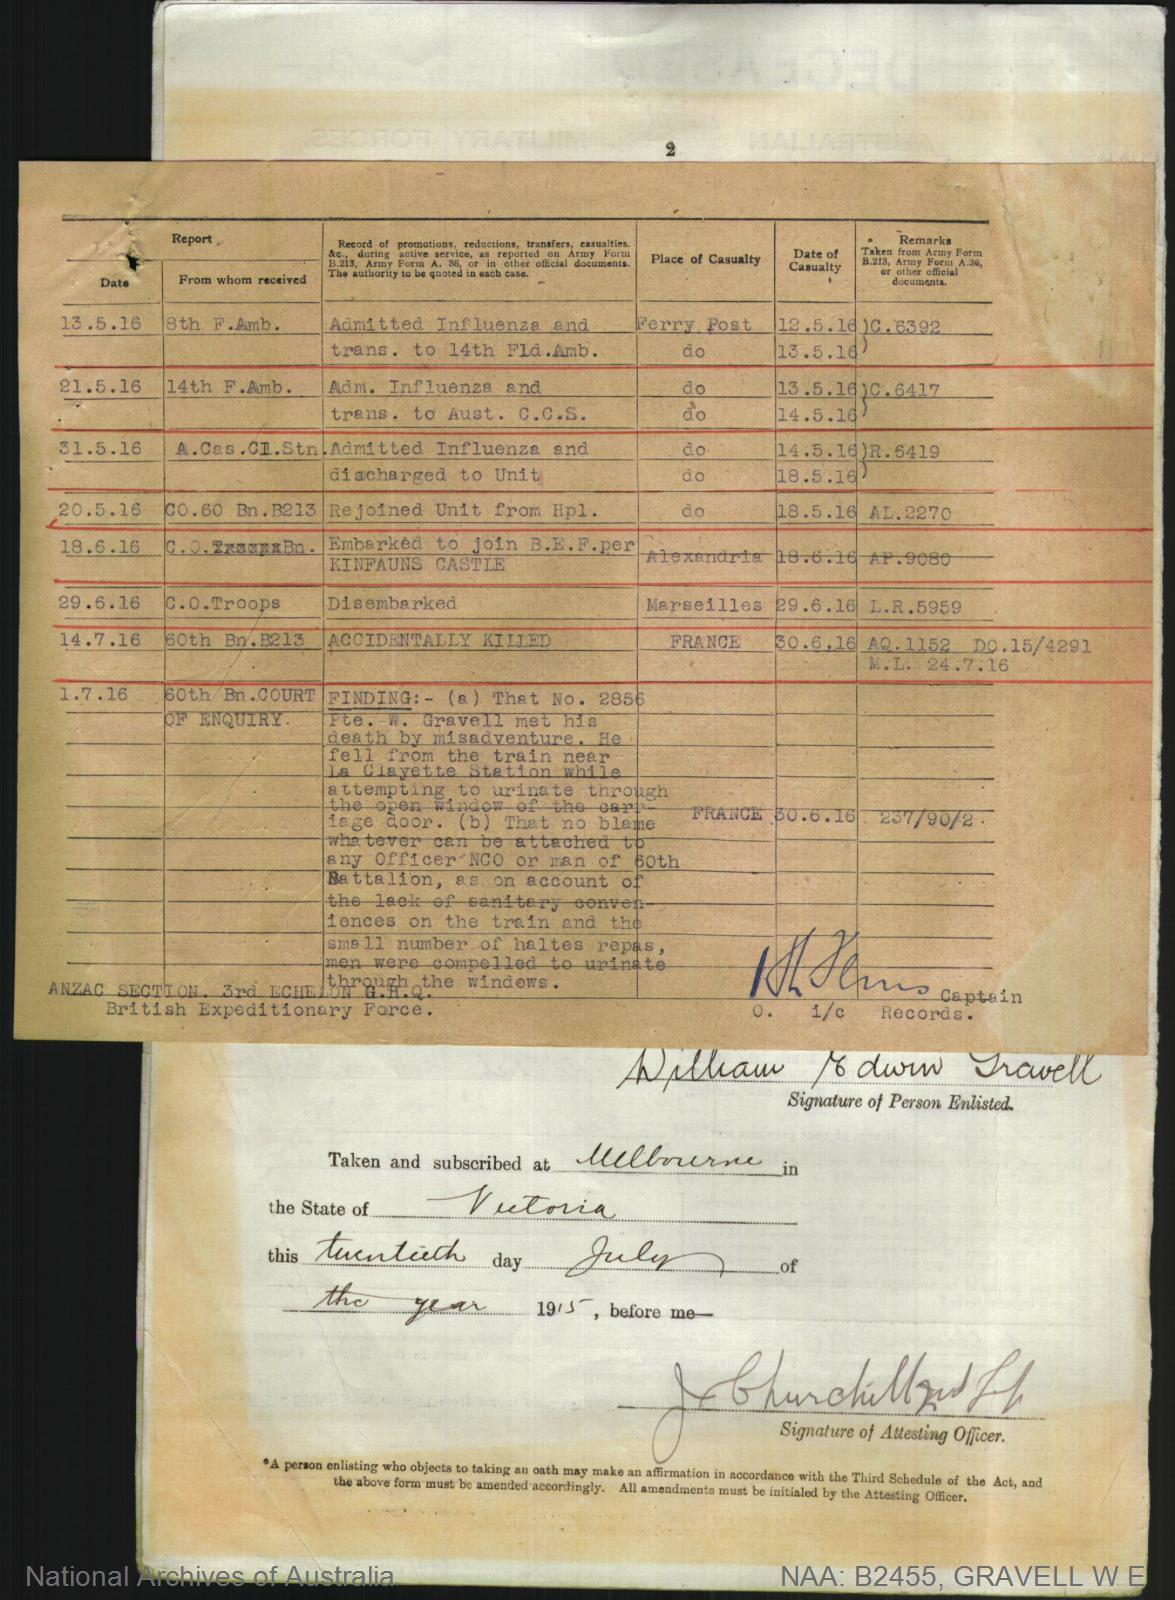 2
Report
Record of promotions, reductions, transfers, casualties,
&c., during active service, as reported on Army Form
B.213, Army Form A. 36, or in other official documents.
The authority to be quoted in each case.
Place of Casualty
Date of
Casualty
Remarks
Taken from Army Form
B.213, Army Form A.36,
or other official
documents.
Date
From whom received
13.5.16 8th F.Amb. Admitted Influenza and Ferry Post 12.5.16) C.6392
trans. to 14th Fld.Amb. do 13.5.16)
21.5.16 14th F.Amb. Adm. Influenza and do 13.5.16) C.6417
trans. to Aust. C.C.S. do 14.5.16)
31.5.16 A.Cas.Cl.Stn. Admitted Influenza and do 14.5.16) R.6419
discharged to Unit do 18.5.16)
20.5.16 CO.60 Bn.B213 Rejoined Unit from Hpl. do 18.5.16 AL.2270
18.6.16 C.O. Bn. Embarked to join B.E.F.per Alexandria 18.6.16 AP.9080
KINFAUNS CASTLE
29.6.16 C.O.Troops Disembarked Marseilles 29.6.16 L.R.5959
14.7.16 60th Bn.B213 ACCIDENTALLY KILLED FRANCE 30.6.16 AQ.1152 DO.15/4291
M.L. 24.7.16
1.7.16 60th Bn.COURT FINDING:- (a) That No. 2856
OF ENQUIRY. Pte. W. Gravell met his
death by misadventure. He
fell from the train near
La Clayette Station while
attempting to urinate through
the open window of the carr-
iage door. (b) That no blame FRANCE 30.6.16 237/90/2.
whatever can be attached to
any Officer NCO or man of 60th
Battalion, as on account of
the lack of sanitary conven-
iences on the train and the
small number of haltes repas,
men were compelled to urinate
through the windows.
ANZAC SECTION. 3rd ECHELON G.H.Q. Captain
British Expeditionary Force. O. i/c Records.
William Edwin Gravell
Signature of Person Enlisted.
Taken and subscribed at Melbourne in
the State of Victoria
this twentieth day July of
the year 1915, before me—
J Churchill 2nd Lt
Signature of Attesting Officer.
*A person enlisting who objects to taking an oath may make an affirmation in accordance with the Third Schedule of the Act, and
the above form must be amended accordingly. All amendments must be initialed by the Attesting Officer.
National Archives of Australia NAA: B2455, GRAVELL W E